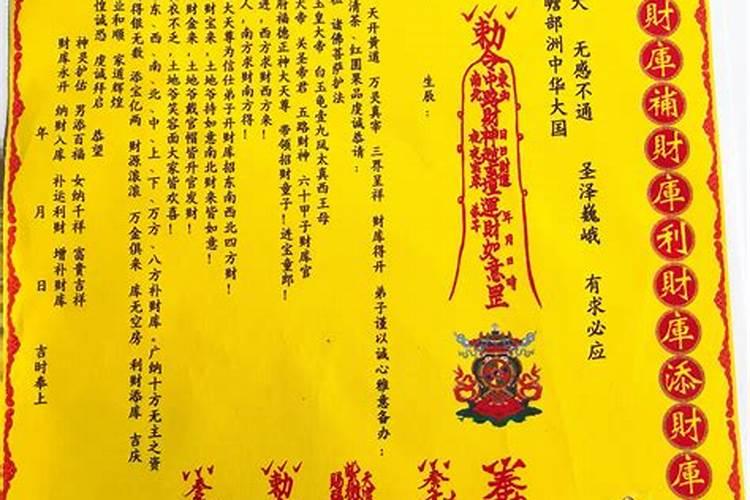 財庫補財庫利財庫添財庫
无感不通 圣泽巍峨 有求必应
瞻部洲中华大国
敕令
路财神
運財如意罡
年月日時
生辰：
天开黄道 万灵真宰 三界呈祥 财库得开 弟子谨以诚心雅意备办：
清茶、红圆果品虔诚恭请：
诸佛菩萨护法
玉皇大帝 白玉龟壹九凤太真西王母
大帝 关圣帝君 五路财神 六十甲子财库官
府福德正神大天尊 带领招财童子！进宝童郎！
进，西方求财西方来！
人，南方求财南方得！
大天尊为信仕弟子开财库招东南西北四方财！
财宝来，土地爷持如意南北财来皆如意！
财金来，土地爷戴官帽皆升官发财！
衣不乏，土地爷笑容面大家皆欢喜！
东、西、南、北、中、上、下、万方、八方补财库。广纳十方无主之资
得银无数 添宝亿两 财源滚滚 万金俱来 库无空房 利财添库 吉庆
业和顺 家道辉煌
惶诚恐 虔诚拜启 恭望
神灵护佑 男添百福 女纳千祥 富贵吉祥
财库永开 纳财入库 补运利财 增补财库
年 月 日 吉时奉上
敕